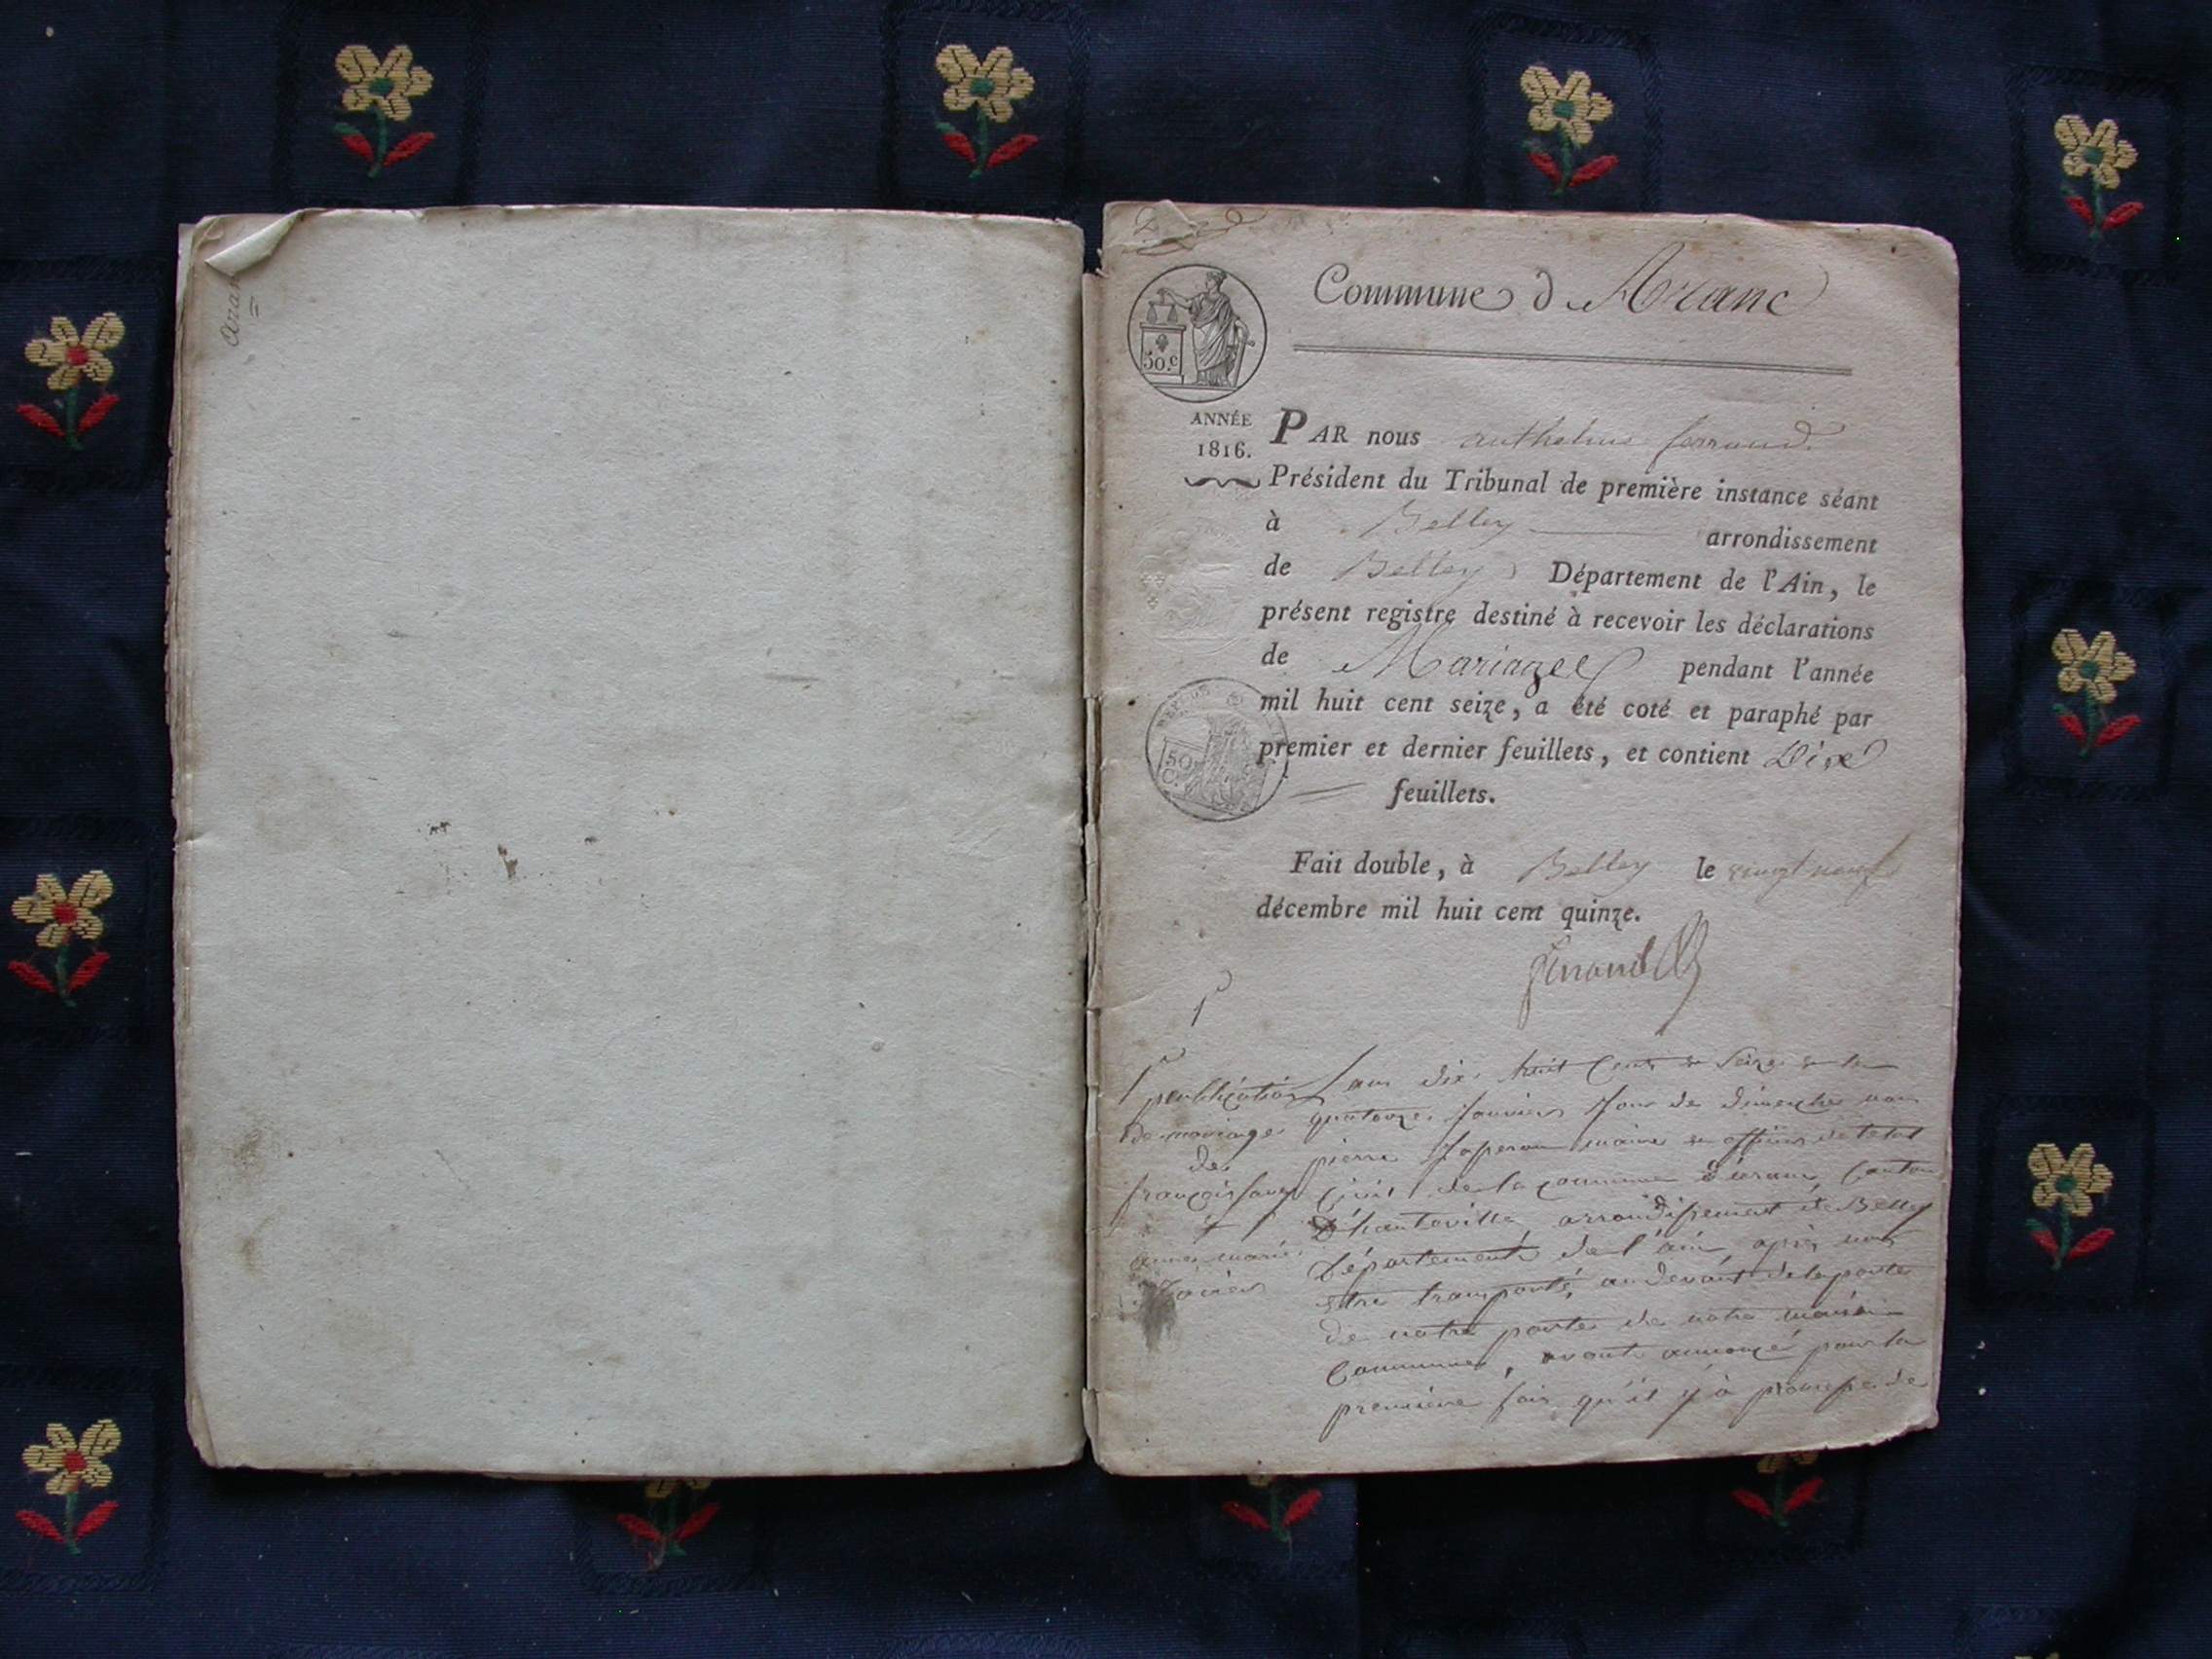 Commune d'Aranc
50.c
ANNÉE
1816.
PAR nous anthelme ferrand
Président du Tribunal de première instance séant
à Belley arrondissement
de Belley Département de l'Ain, le
présent registre destiné à recevoir les déclarations
de Mariages pendant l'année
mil huit cent seize, a été coté et paraphé par
premier et dernier feuillets, et contient Dix
feuillets.
50
C.
Fait double, à Belley le vingt neuf
décembre mil huit cent quinze.
ferrand
1
1re publication
de mariage
de
françois
&
anne marie
L'an dix huit Cent & Seize & le
quatorze Janvier Jour de dimanche nous
pierre maire & officier de l'etat
Civil de la commune d'aranc, Canton
D'hauteville, arrondissement de Belley
Département de l'ain, après nous
etre transporté, au devant de la porte
de notre porte de notre maison
Commune, avons annoncé pour la
première fois qu'il y à promesse de